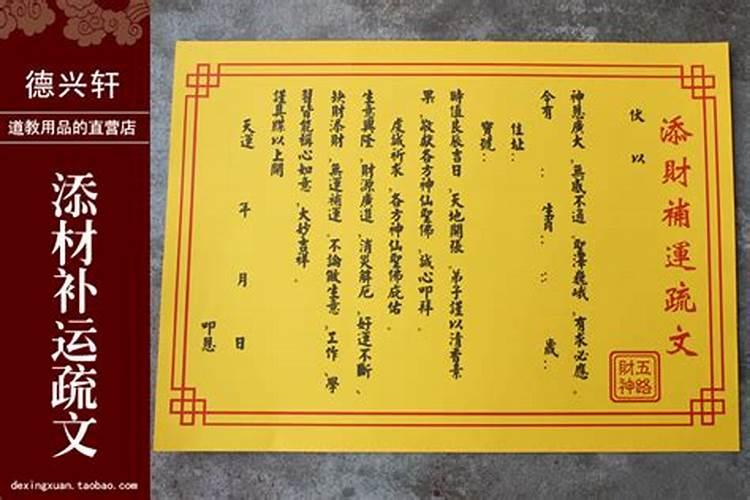 德兴轩
道教用品的直营店
添材补运疏文
dexingxuan.taobao.com
添財補運疏文
五路
財神
伏以
神恩廣大、無感不通、聖澤巍峨、有求必應。
今有 : 生肖 : : 歲。
住址:
寶號:
時值良辰吉日、天地開張、弟子謹以清香素
果、敬獻各方神仙聖佛、誠心叩拜。
虔誠祈求、各方神仙聖佛庇佑。
生意興隆、財源廣進、消災解厄、好運不斷、
缺財添財、無運補運、不論做生意、工作、學
習皆能稱心如意、大妙吉祥。
謹具牒以上聞
天運 年 月 日 叩恩